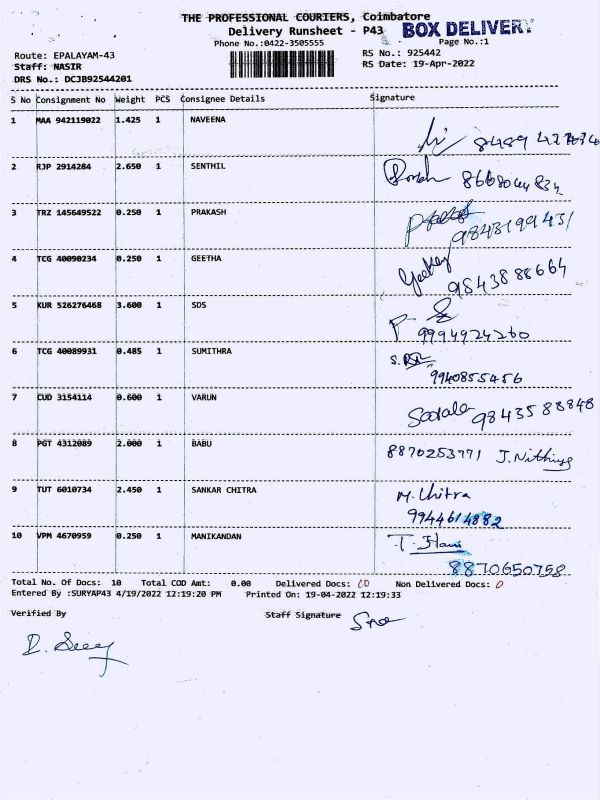 THE PROFESSIONAL COURIERS, Coimbatore
Delivery Runsheet - P43
BOX DELIVERY
Phone No.:0422-3505555
Page No.:1
Route: EPALAYAM-43
RS No.: 925442
Staff: NASIR
RS Date: 19-Apr-2022
DRS No.: DCJB92544201
S No Consignment No Weight PCS Consignee Details Signature
1 MAA 942119022 1.425 1 NAVEENA
2 RJP 2914284 2.650 1 SENTHIL
3 TRZ 145649522 0.250 1 PRAKASH
9843199431
4 TCG 40090234 0.250 1 GEETHA
9843888664
5 KUR 526276468 3.600 1 SDS
9994924260
6 TCG 40089931 0.485 1 SUMITHRA
9940855456
7 CUD 3154114 0.600 1 VARUN
9843588848
8 PGT 4312089 2.000 1 BABU
8870253771 J.Nithiya
9 TUT 6010734 2.450 1 SANKAR CHITRA
M.Chitra
9944614882
10 VPM 4670959 0.250 1 MANIKANDAN
8870650758
Total No. Of Docs: 10 Total COD Amt: 0.00 Delivered Docs: 10 Non Delivered Docs: 0
Entered By :SURYAP43 4/19/2022 12:19:20 PM Printed On: 19-04-2022 12:19:33
Verified By Staff Signature